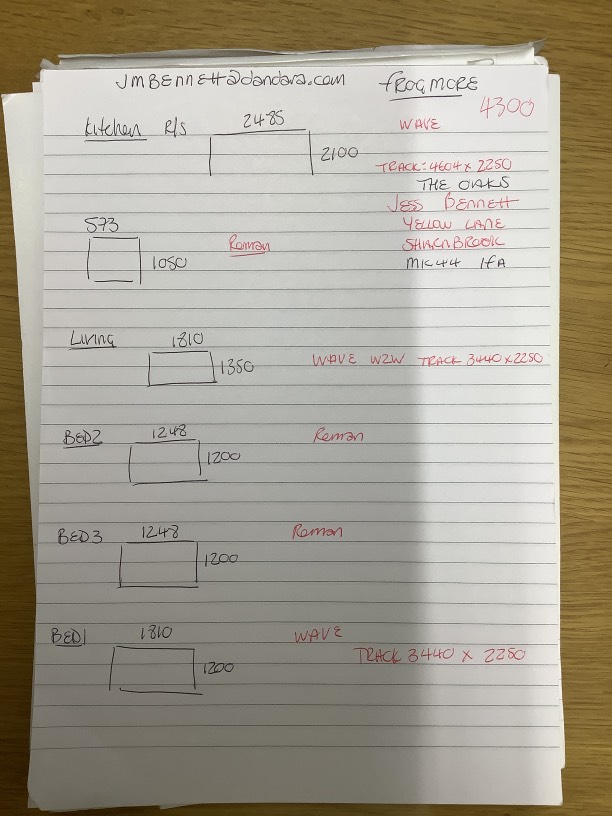 JMBENNETT@dandara.com
FROGMORE
4300
Kitchen R/S 2485
WAVE
2100
TRACK: 4604 x 2250
THE OAKS
JESS BENNETT
573
YELLOW LANE
Roman
SHIRENBROOK
1050
MK44 1FA
LIVING 1810
1350
WAVE W2W TRACK 3440 x 2250
BED2 1248
Roman
1200
BED3 1248
Roman
1200
BED1 1810
WAVE
1200
TRACK 3440 x 2250